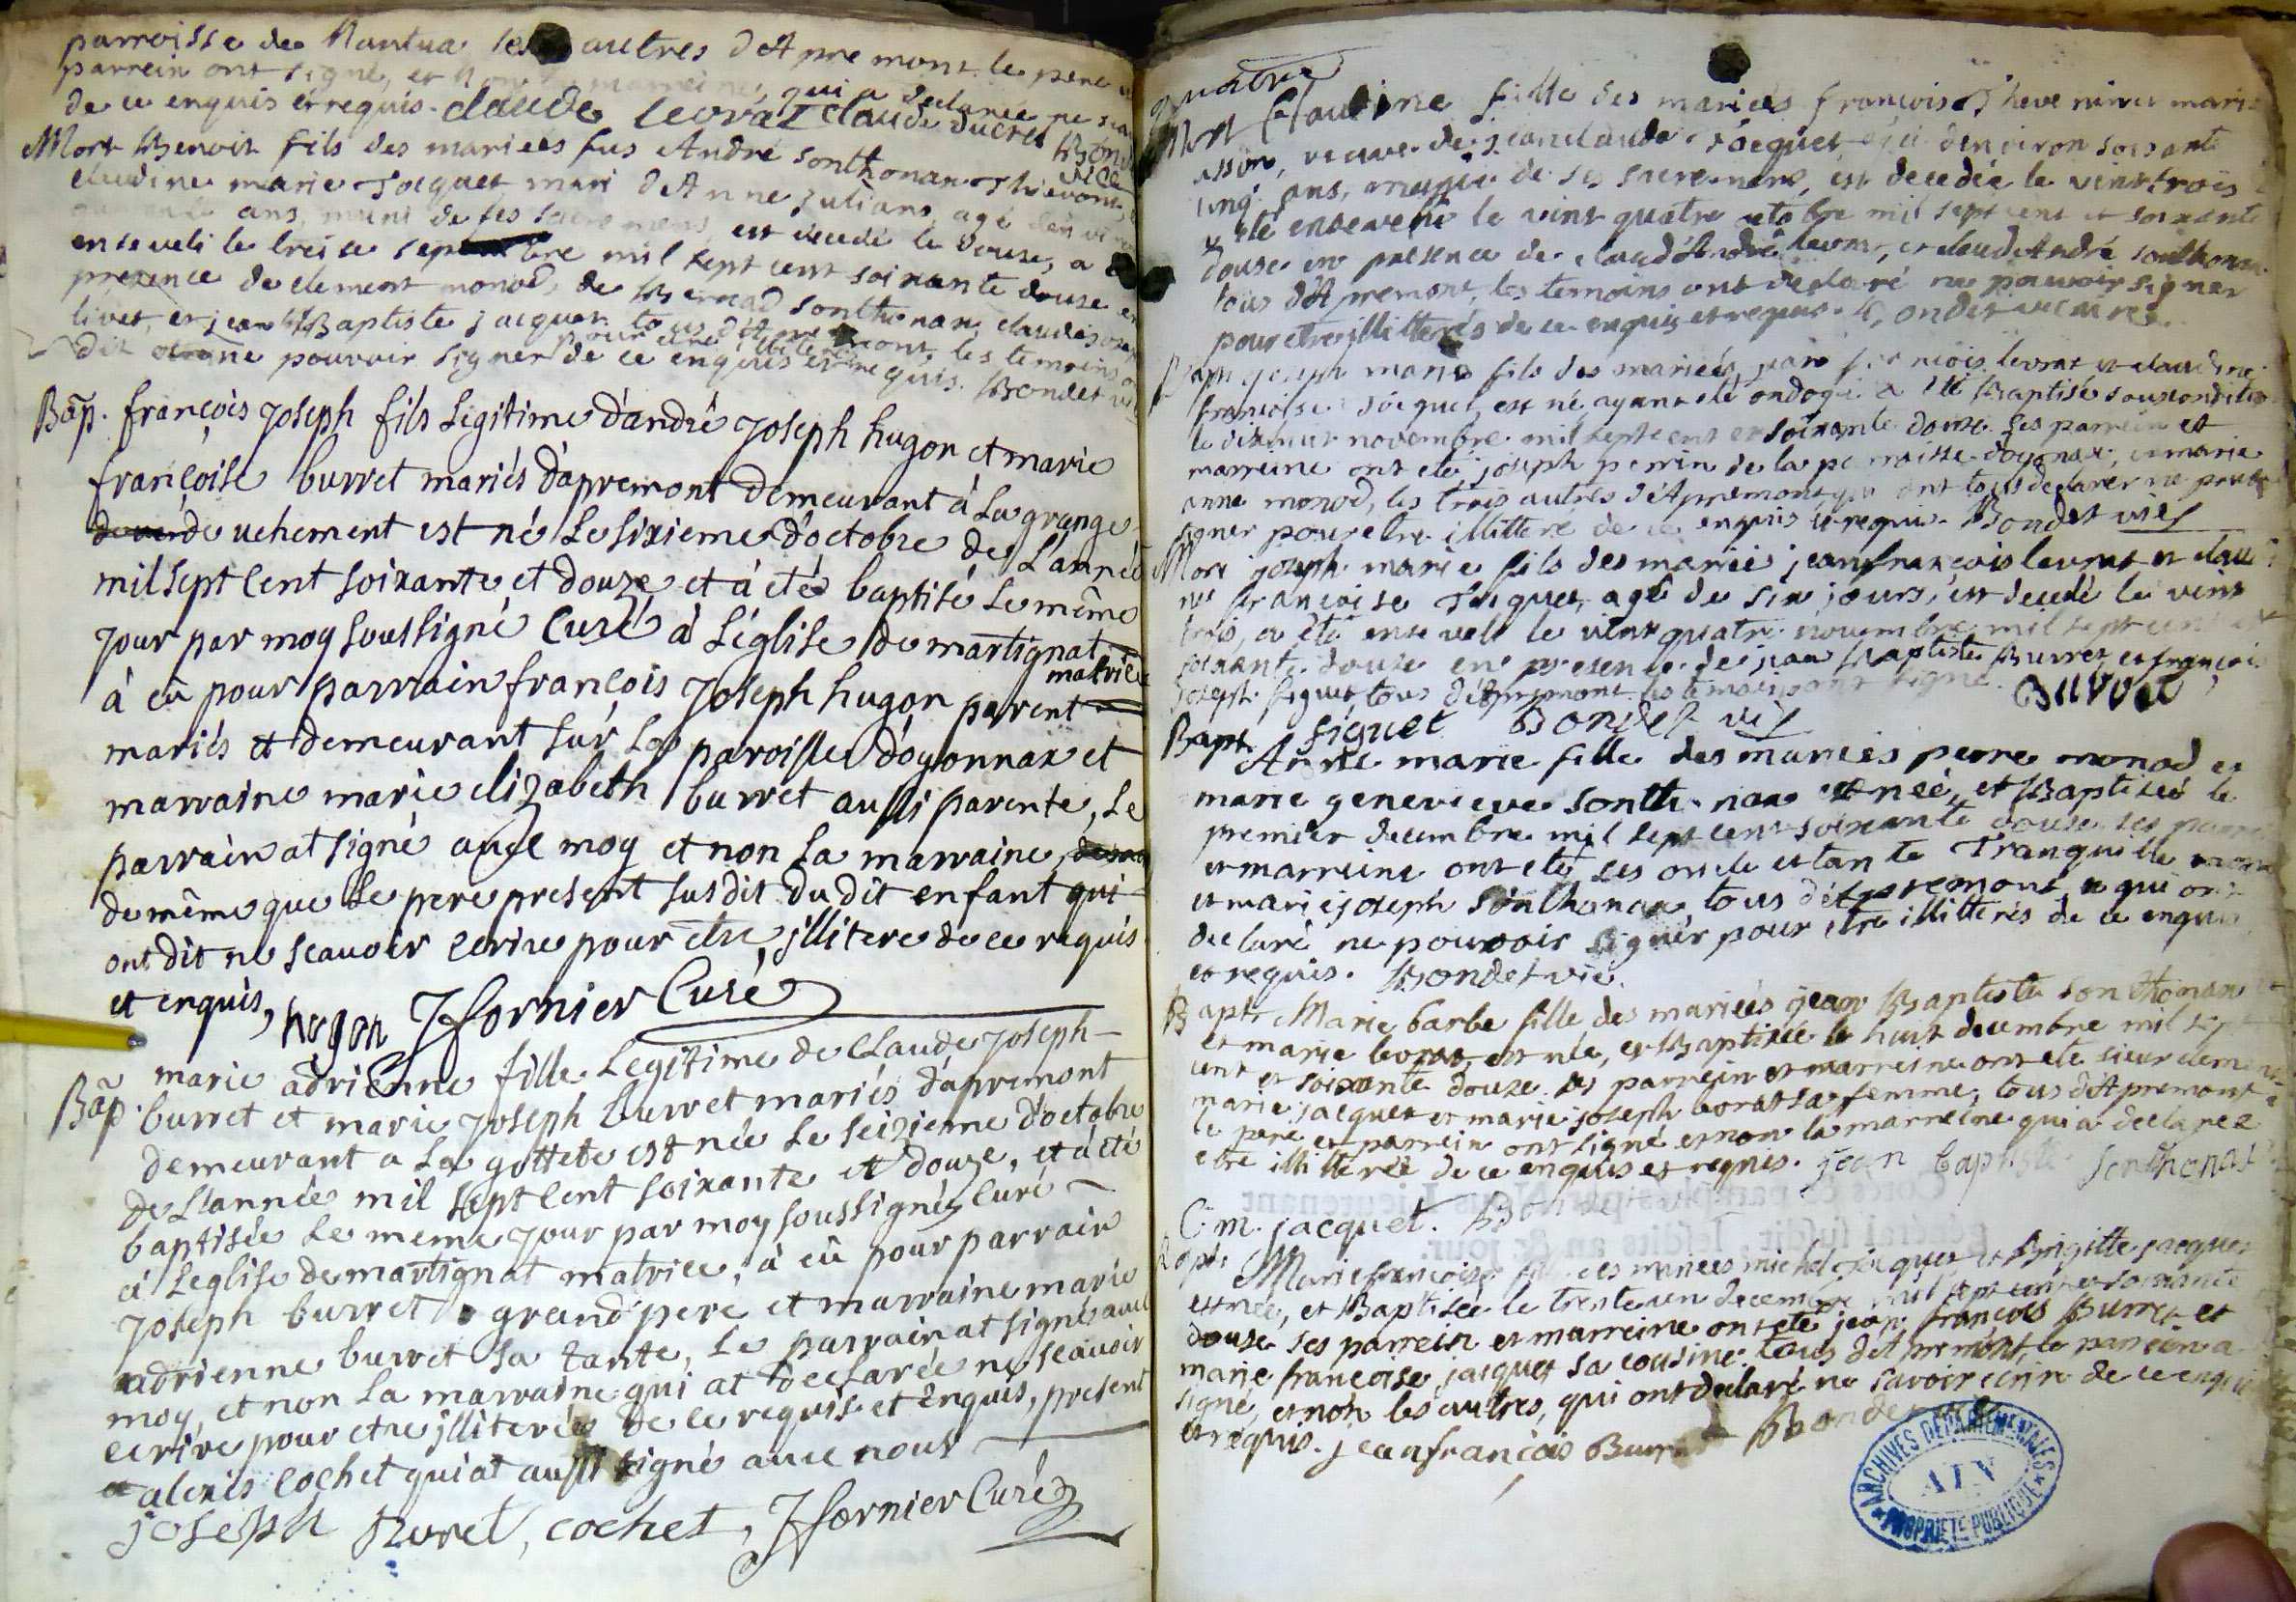 parroisse de Nantua les autres d'Apremont le pere
parrein ont signé, et non la marreine, qui a declarée ne
de ce enquis et requis. claude levrat claude ducret Bondet
Mort Benoit fils des mariées fus André Sonthonax Thievent vice
claudine marie Jacquet mari d'Anne Julians, agé d'envi
ans, muni de ses sacremens, est decedé le douse, a
enseveli le treise septembre mil sept cent soixante douse en
presence de clement monod, de Bernad Sonthonax, claude
livet, et jean Baptiste jacquet tous d'Apremont, les temoins
pour etre illiteré
dit ne pouvoir signer de ce enquis et requis. Bondet
Bap. françois Joseph fils Legitime d'andré Joseph hugon et marie
françoise burret mariés d'apremont demeurant à La grange
de uehement est né Le sixieme d'octobre de L'année
mil sept Cent soixante et douze et à eté baptisé Le même
jour par moy soussigné Curé à L'église de martignat
matrice
à eû pour parrain françois Joseph hugon parent
mariés et demeurant sur La paroisse d'oyonnax et
marraine marie elizabeth burret aussi parente, Le
parrain at signé avec moy et non La marraine
de même que Le pere present susdit du dit enfant qui
ont dit ne scauoir ecrire pour etre illitere de ce requis
et enquis, hugon Jfornier Curé
Bap. marie adrienne fille Legitime de Claude Joseph
burret et marie Joseph burret mariés d'apremont
demeurant a La gottete est née Le seizieme d'octobre
de L'année mil sept Cent soixante et douze, et à eté
baptisée Le meme jour par moy soussigné Curé
à L'eglise de martignat matrice, à eû pour parrain
Joseph burret grand pere et marraine marie
adrienne burret sa tante, Le parrain at signé avec
moy, et non La marraine qui at declarée ne scauoir
ecrire pour etre illiterée de ce requis et enquis, present
alexis Cochet qui at aussi signé avec nous
joseph Buret, cochet, Jfornier Curé
quatre
Mort Claudine fille des mariées françois Thevenin et marie
veuve de jean claude Jacquet agée d'environ soisante
cinq ans, munie de ses sacremens, est decedée le vint trois
eté ensevelie le vint quatre octobre mil sept cent et soixante
douse en presence de claud'André levrat, et claud'André sonthonax
tous d'Apremont, les temoins ont declaré ne pouvoir signer
pour etre illitterés de ce enquis et requis. Bondet vicaire
Bapt joseph marie fils des mariées jean françois levrat et claudine
françoise Jacquet, est né, ayant eté ondogé a eté Baptisé sous condition
le dixhuit novembre mil sept cent et soixante douse. ses parrein et
marreine ont eté joseph perrin de la parroisse d'oyonax, et marie
anne monod, les trois autres d'Apremont qui ont tous declarer ne pouvoir
signer pour etre illitteré de ce enquis et requis. Bondet vic
Mort joseph marie fils des mariés jean françois levrat et clau
ne françoise Jacquet, agé de six jours, est decedé le vint
trois, a été enseveli le vint quatre novembre mil sept cent et
soixante douse en presence de jean Baptiste Burret, et françois
joseph figuet tous d'Apremont les temoins ont signé. Burret
figuet Bondet vic
Bapt. Anne marie fille des mariées pierre monod et
marie genevieve Sonthonax est née, et Baptisée le
premier decembre mil sept cent soixante douse ses parrein
et marreine ont eté ses oncle et tante Tranquille monod
et marie joseph Sonthonax tous d'Apremont, qui ont
declaré ne pouvoir signer pour etre illitterés de ce enquis
et requis. Bondet vic
Bapt Marie barbe fille des mariées jean Baptiste Sonthonax
et marie levrat, est née, et Baptisée le huit decembre mil sept
cent et soixante douse. ses parrein et marreine ont eté sieur clement
marie jacquet et marie joseph levrat sa femme, tous d'Apremont
le pere et parrein ont signé et non la marreine qui a declaree
etre illitterée de ce enquis et requis. jean baptiste Sonthonax
C. m. jacquet. Bondet
Bapt. Marie françoise fille des mariées michel Jacquet et Brigitte jacquet
est née, et Baptisée le trente un decembre mil sept cent et soixante
douse ses parrein et marreine ont eté jean françois Burret et
marie françoise jacquet sa cousine tous d'Apremont, le parrein a
signé, et non les autres, qui ont declaré ne savoir ecrire de ce enquis
et requis. jean françois Burret Bondet
ARCHIVES DÉPARTEMENTALES
AIN
PROPRIÉTÉ PUBLIQUE